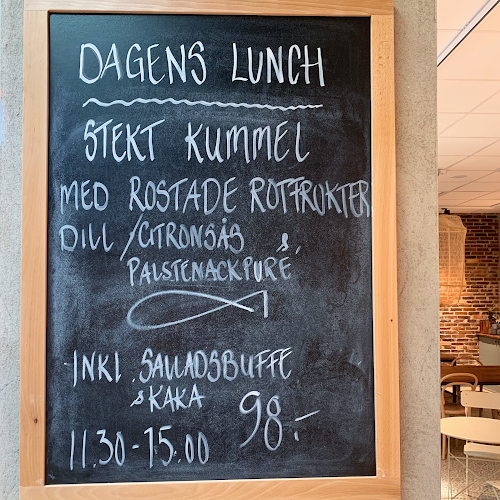 DAGENS LUNCH
STEKT KUMMEL
MED ROSTADE ROTFRUKTER
DILL / CITRONSÅS &
PALSTENACKPURÉ
INKL. SALLADSBUFFE
& KAKA
98:-
11.30-15.00